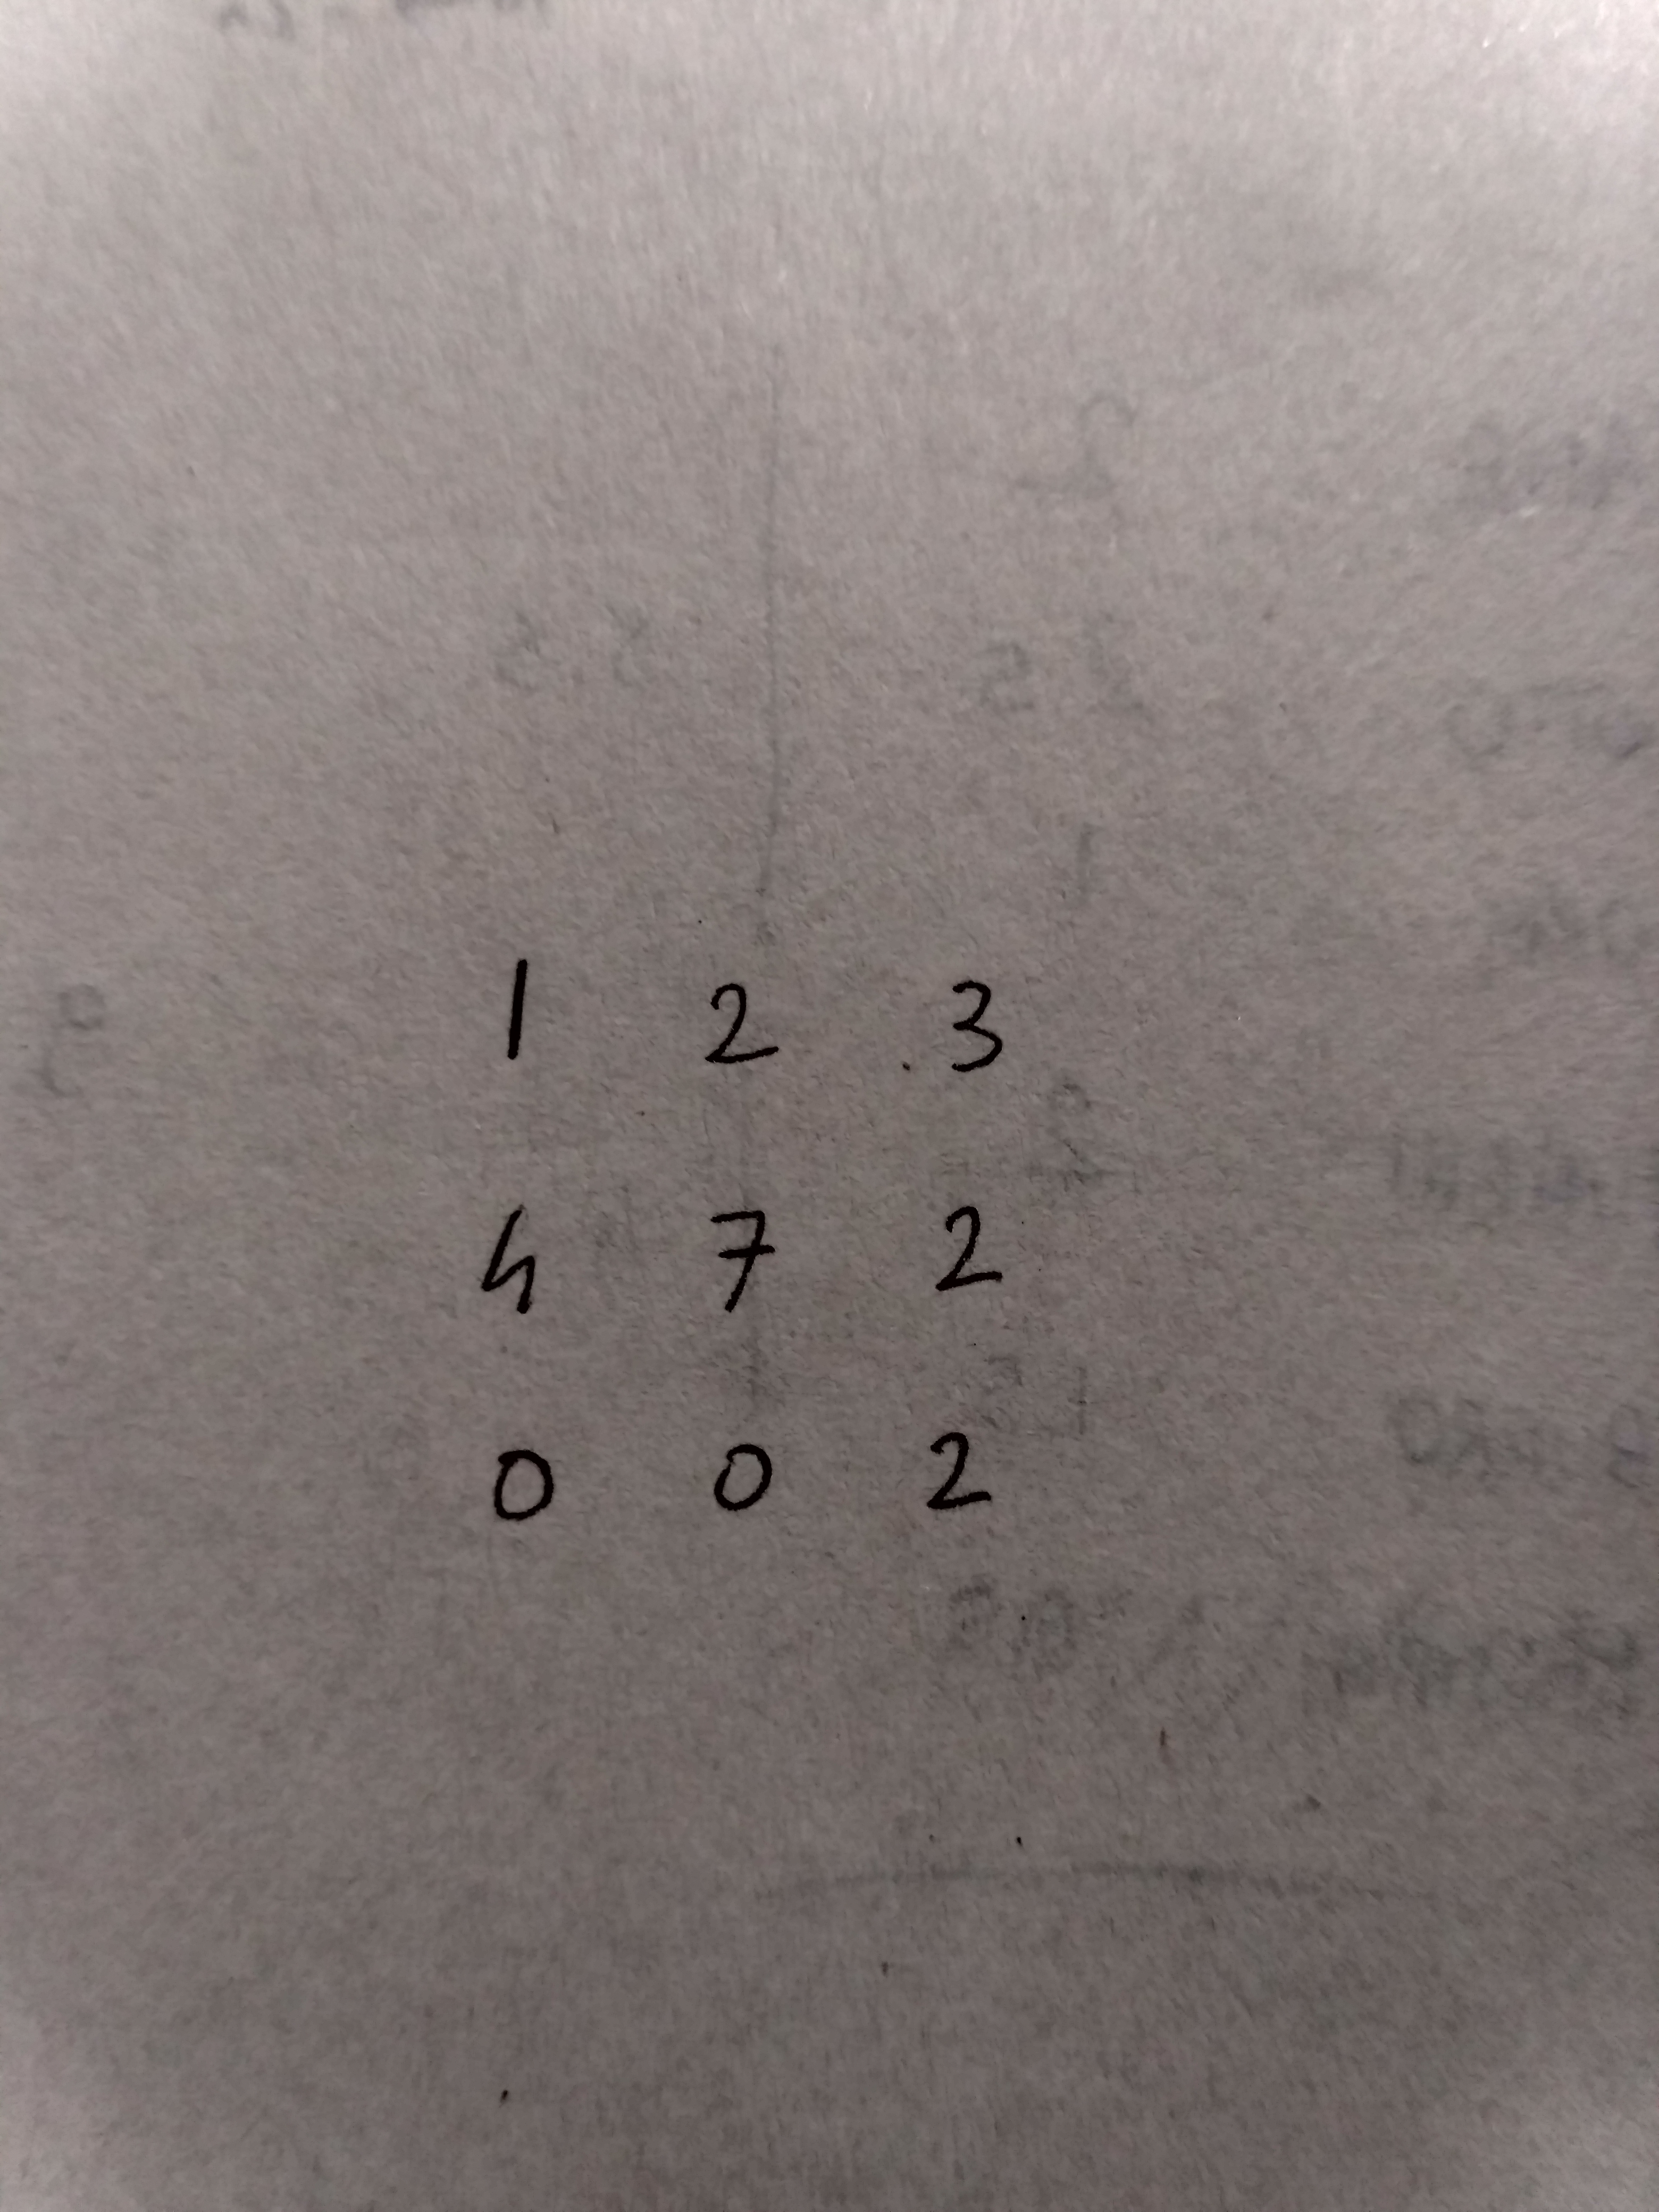 1 2 3
4 7 2
0 0 2